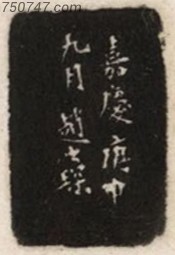 750747.com
嘉慶庚申
九月趙之琛